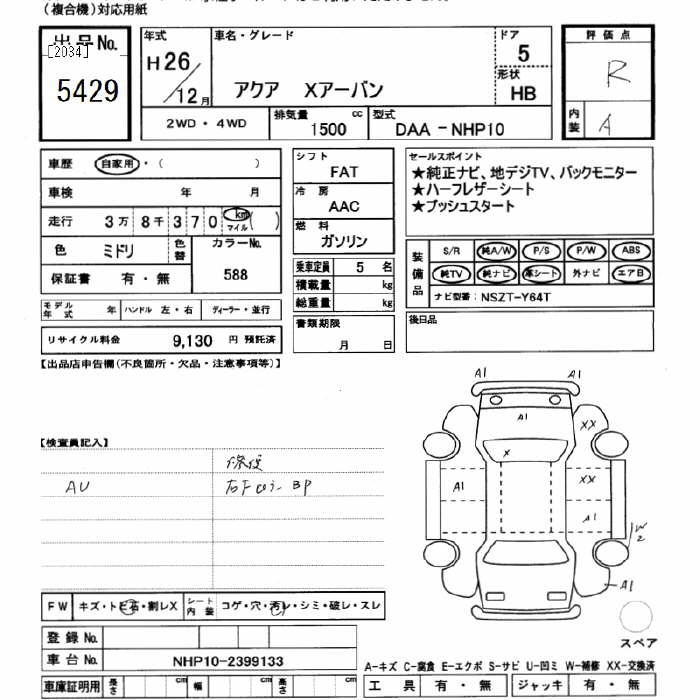 （複合機）対応用紙
出品No.
[2034]
5429
年式
H26/12月
車名・グレード
アクア Xアーバン
ドア
5
形状
HB
2WD・4WD
排気量
1500 cc
型式
DAA-NHP10
評価点
R
内装
A
車歴 自家用・（ ）
車検 年 月
走行 3万8千370 km マイル ( )
色 ミドリ
色替
カラーNo.
588
保証書 有・無
モデル年式 年
ハンドル 左・右
ディーラー・並行
リサイクル料金 9,130 円 預託済
シフト
FAT
冷房
AAC
燃料
ガソリン
乗車定員 5 名
積載量 kg
総重量 kg
書類期限
月 日
セールスポイント
★純正ナビ、地デジTV、バックモニター
★ハーフレザーシート
★プッシュスタート
装備品
S/R 純A/W P/S P/W ABS
純TV 純ナビ 革シート 外ナビ エアB
ナビ型番：NSZT-Y64T
後日品
【出品店申告欄(不良箇所・欠品・注意事項等)】
【検査員記入】
修復
AU
BP
A1 A1
A1
XX
X
A1
XX
A1
W2
A1
スペア
FW キズ・トビ石・割レX
シート内装 コゲ・穴・汚レ・シミ・破レ・スレ
登録No.
車台No. NHP10-2399133
車庫証明用 長さ cm 幅 cm 高さ cm
A-キズ C-腐食 E-エクボ S-サビ U-凹ミ W-補修 XX-交換済
工具 有・無 ジャッキ 有・無